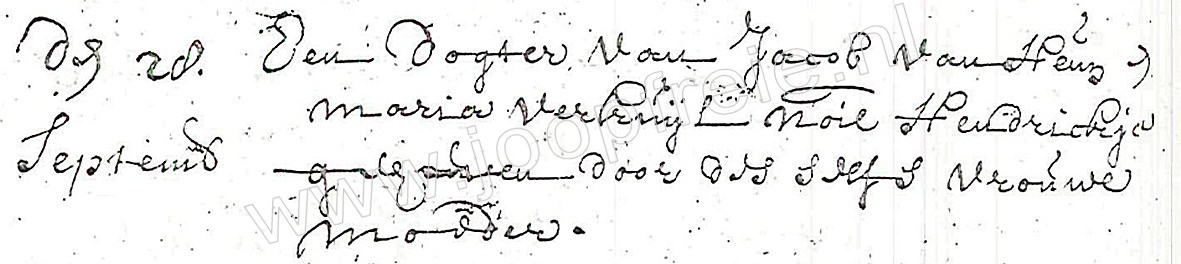 ds 28. Een Dogter van Jacob van Heus,
Maria Verkuijl noie Hendrickje
Septemb door des selfs vrouwe
modder.
www.joopfreie.nl